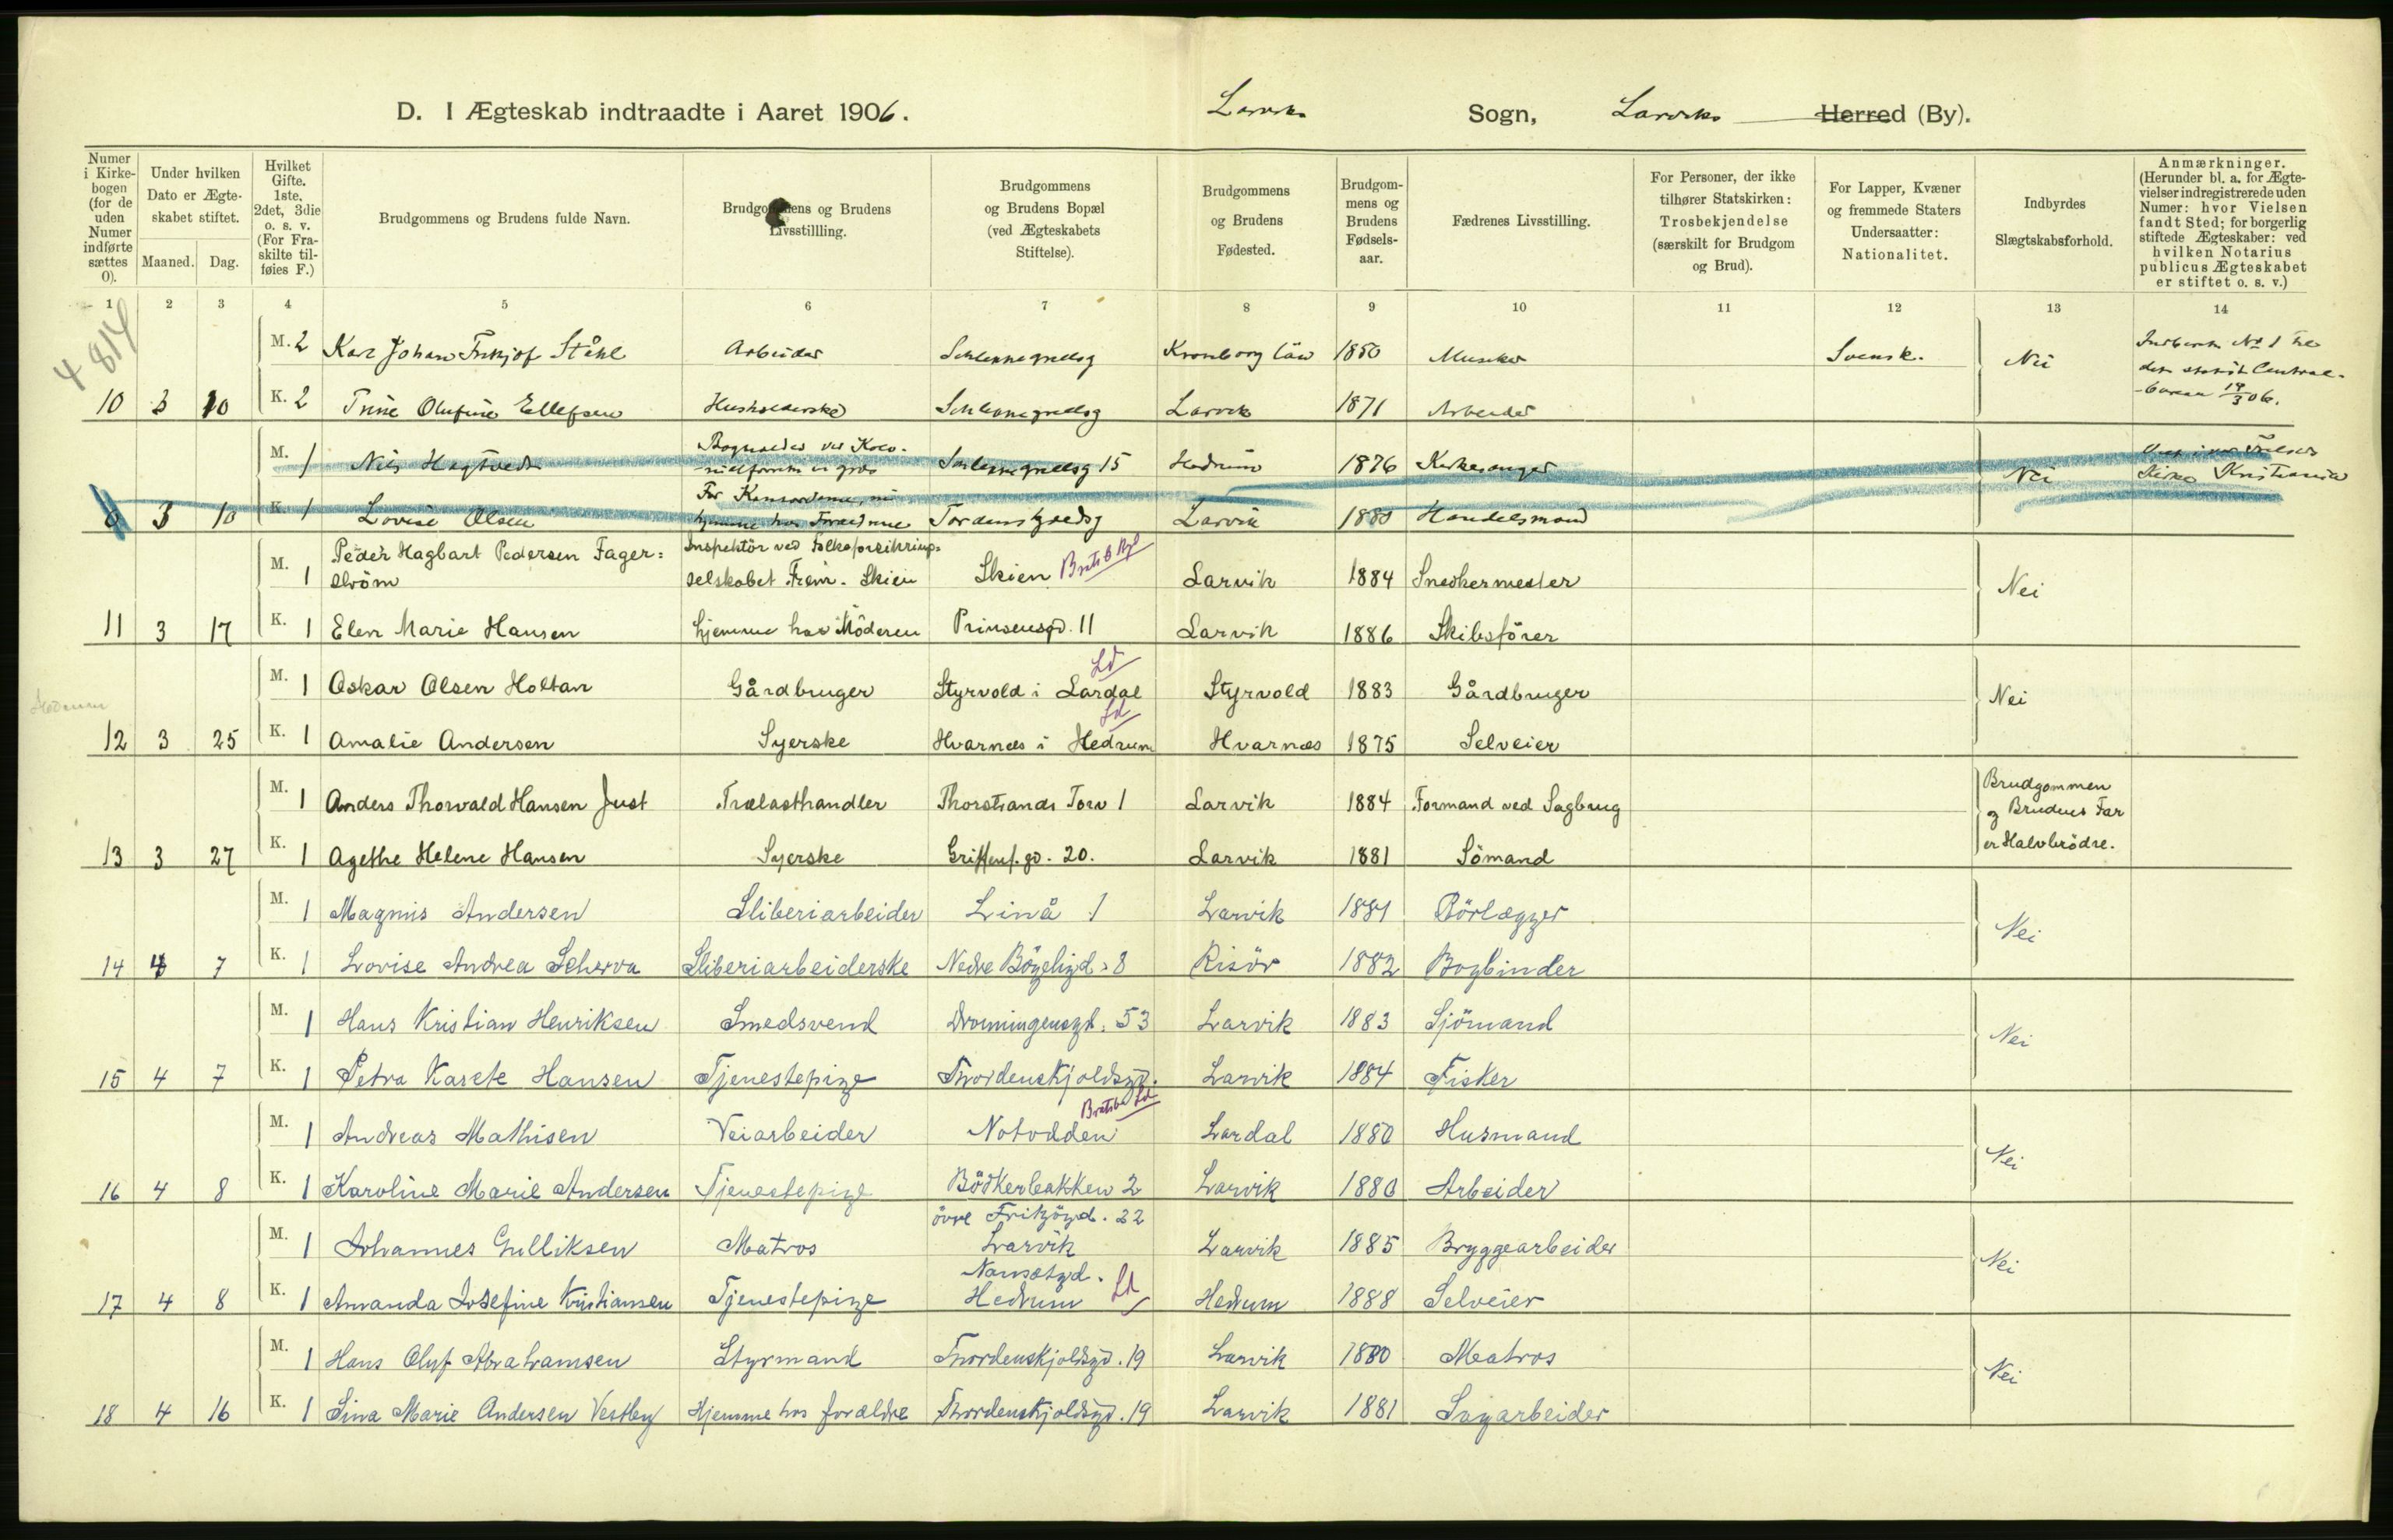 D. I Ægteskab indtraadte i Aaret 1906. Larviks Sogn, Larviks Herred (By).
Numer i Kirkebogen (for de uden Numer indførte sættes 0).
Under hvilken Dato er Ægteskabet stiftet.
Maaned. Dag.
Hvilket Gifte. 1ste, 2det, 3die o. s. v. (For Fraskilte tilføies F.)
Brudgommens og Brudens fulde Navn.
Brudgommens og Brudens Livsstillling.
Brudgommens og Brudens Bopæl (ved Ægteskabets Stiftelse).
Brudgommens og Brudens Fødested.
Brudgommens og Brudens Fødselsaar.
Fædrenes Livsstilling.
For Personer, der ikke tilhører Statskirken: Trosbekjendelse (særskilt for Brudgom og Brud).
For Lapper, Kvæner og fremmede Staters Undersaatter: Nationalitet.
Indbyrdes Slægtskabsforhold.
Anmærkninger. (Herunder bl. a. for Ægtevielser indregistrerede uden Numer: hvor Vielsen fandt Sted; for borgerlig stiftede Ægteskaber: ved hvilken Notarius publicus Ægteskabet er stiftet o. s. v.)
1 2 3 4 5 6 7 8 9 10 11 12 13 14
4814
M. 2 Karl Johan Ståhl Arbeider Kronborg län 1850 Svensk. Nei
10 3 10 K. 2 Trine Olufine Ellefsen Husholderske Larvik 1871 Arbeider
M. 1 Nils Hagtvedt 15 Hedrum 1876 Kirkesanger Nei Kirke Kristiania
0 3 10 K. 1 Lovise Olsen Tordenskjoldsg Larvik 1880 Handelsmand
M. 1 Peder Hagbart Pedersen Fager= ström Inspektör ved Folkeforsikrings= selskabet Frem. Skien Skien Bratsb Larvik 1884 Snedkermester Nei
11 3 17 K. 1 Elen Marie Hansen hjemme hos Möderen Prinsensgd. 11 Larvik 1886 Skibsförer
M. 1 Oskar Olsen Holtan Gårdbruger Styrvold i Lardal Ld Styrvold 1883 Gårdbruger Nei
Hedrum
12 3 25 K. 1 Amalie Andersen Syerske Hvarnes i Hedrum Ld Hvarnæs 1875 Selveier
M. 1 Anders Thorvald Hansen Just Trælasthandler Thorstrands Torv 1 Larvik 1884 Formand ved Sagbrug Brudgommen og Brudens Far er Halvbrödre.
13 3 27 K. 1 Agethe Helene Hansen Syerske 20. Larvik 1881 Sömand
M. 1 Magnus Andersen Sliberiarbeider Linå 1 Larvik 1881 Rörlægger Nei
14 4 7 K. 1 Lovise Andrea Scherva Sliberiarbeiderske Nedre Bögeligd. 8 Risör 1882 Bogbinder
M. 1 Hans Kristian Henriksen Smedsvend Dronningensgd. 53 Larvik 1883 Sjömand Nei
15 4 7 K. 1 Petra Kasete Hansen Tjenestepige Thordenskjoldsgd. Larvik 1884 Fisker
M. 1 Andreas Mathisen Veiarbeider Notodden Bratsb Ld Lardal 1880 Husmand Nei
16 4 8 K. 1 Karoline Marie Andersen Tjenestepige Bödkerbakken 2 Larvik 1880 Arbeider
M. 1 Johannes Gulliksen Matros övre Fritzögd. 22 Larvik Larvik 1885 Bryggearbeider Nei
17 4 8 K. 1 Amanda Josefine Kristiansen Tjenestepige Nansetgd. Hedrum Ld Hedrum 1888 Selveier
M. 1 Hans Oluf Abrahamsen Styrmand Thordenskjoldsgd. 19 Larvik 1880 Matros Nei
18 4 16 K. 1 Sina Marie Andersen Vestby Hjemme hos forældre Thordenskjoldsgd. 19 Larvik 1881 Sagarbeider